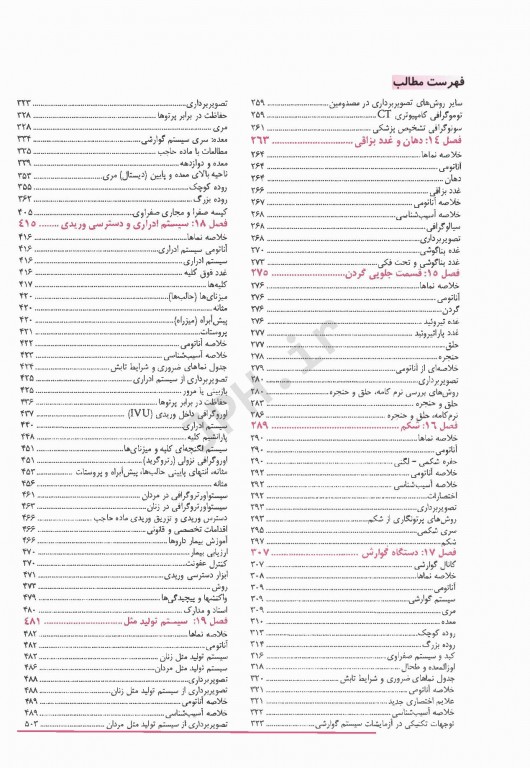 فهرست مطالب
سایر روش‌های تصویربرداری در مصدومین ۲۵۹
توموگرافی کامپیوتری CT ۲۵۹
سونوگرافی تشخیص پزشکی ۲۶۱
فصل ۱۴: دهان و غدد بزاقی ۲۶۳
خلاصه نماها ۲۶۴
آناتومی ۲۶۴
دهان ۲۶۴
غدد بزاقی ۲۶۶
خلاصه آناتومی ۲۶۷
خلاصه آسیب‌شناسی ۲۶۸
سیالوگرافی ۲۶۸
تصویربرداری ۲۶۸
غده بناگوشی ۲۷۰
غدد بناگوشی و تحت فکی ۲۷۳
فصل ۱۵: قسمت جلویی گردن ۲۷۵
خلاصه نماها ۲۷۶
آناتومی ۲۷۶
گردن ۲۷۶
غده تیروئید ۲۷۶
غدد پاراتیروئید ۲۷۷
حلق ۲۷۷
حنجره ۲۷۸
خلاصه‌ای از آناتومی ۲۷۹
تصویربرداری ۲۸۰
روش‌های بررسی نرم کامه، حلق و حنجره ۲۸۰
حلق و حنجره ۲۸۳
نرم‌کامه، حلق و حنجره ۲۸۶
فصل ۱۶: شکم ۲۸۹
خلاصه نماها ۲۹۰
آناتومی ۲۹۰
حفره شکمی - لگنی ۲۹۰
خلاصه آناتومی ۲۹۲
خلاصه آسیب‌شناسی ۲۹۲
اختصارات ۲۹۲
تصویربرداری ۲۹۳
روش‌های پرتونگاری از شکم ۲۹۳
سری شکمی ۲۹۵
شکم ۲۹۷
فصل ۱۷: دستگاه گوارش ۳۰۷
کانال گوارشی ۳۰۷
خلاصه نماها ۳۰۸
آناتومی ۳۰۹
سیستم گوارشی ۳۰۹
مری ۳۰۹
معده ۳۱۰
روده کوچک ۳۱۳
روده بزرگ ۳۱۴
کبد و سیستم صفراوی ۳۱۶
لوزالمعده و طحال ۳۱۸
جدول نماهای ضروری و شرایط تابش ۳۲۰
خلاصه آناتومی ۳۲۱
علایم اختصاری جدید ۳۲۱
خلاصه آسیب‌شناسی ۳۲۲
توجهات تکنیکی در آزمایشات سیستم گوارشی ۳۲۳
تصویربرداری ۳۲۳
حفاظت در برابر پرتوها ۳۲۸
مری ۳۲۸
معده: سری سیستم گوارشی ۳۳۴
مطالعات با ماده حاجب ۳۳۵
معده و دوازدهه ۳۳۹
ناحیه بالای معده و پایین (دیستال) مری ۳۵۳
روده کوچک ۳۵۵
روده بزرگ ۳۶۲
کیسه صفرا و مجاری صفراوی ۴۰۵
فصل ۱۸: سیستم ادراری و دسترسی وریدی ۴۱۵
خلاصه نماها ۴۱۶
آناتومی سیستم ادراری ۴۱۶
سیستم ادراری ۴۱۶
غدد فوق کلیه ۴۱۶
کلیه‌ها ۴۱۷
میزنای‌ها (حالب‌ها) ۴۲۰
مثانه ۴۲۰
پیش‌آبراه (میزراه) ۴۲۰
پروستات ۴۲۱
خلاصه آناتومی ۴۲۲
خلاصه آسیب‌شناسی ۴۲۳
جدول نماهای ضروری و شرایط تابش ۴۲۴
تصویربرداری از سیستم ادراری ۴۲۵
بازبینی یا مرور ۴۲۵
حفاظت در برابر پرتوها ۴۳۶
اوروگرافی داخل وریدی (IVU) ۴۳۷
سیستم ادراری ۴۴۰
پارانشیم کلیه ۴۴۸
سیستم لگنچه‌ای کلیه و میزنای‌ها ۴۵۱
اوروگرافی نزولی (رتروگرید) ۴۵۱
مثانه، انتهای پایینی حالب‌ها، پیش‌آبراه و پروستات ۴۵۳
مثانه ۴۵۶
سیستواورتروگرافی در مردان ۴۶۱
سیستواورتروگرافی در زنان ۴۶۳
دسترس وریدی و تزریق وریدی ماده حاجب ۴۶۶
اقدامات تخصصی و قانونی ۴۶۶
آموزش بیمار داروها ۴۶۶
ارزیابی بیمار ۴۷۰
کنترل عفونت ۴۷۰
ابزار دسترسی وریدی ۴۷۱
روش ۴۷۳
واکنشها و پیچیدگی‌ها ۴۷۹
اسناد و مدارک ۴۸۰
فصل ۱۹: سیستم تولید مثل ۴۸۱
خلاصه نماها ۴۸۲
آناتومی ۴۸۲
سیستم تولید مثل زنان ۴۸۲
سیستم تولید مثل مردان ۴۸۶
تصویربرداری ۴۸۸
تصویربرداری از سیستم تولید مثل زنان ۴۸۸
خلاصه آناتومی ۴۸۹
خلاصه آسیب‌شناسی ۴۸۹
تصویربرداری از سیستم تولید مثل مردان ۵۰۳